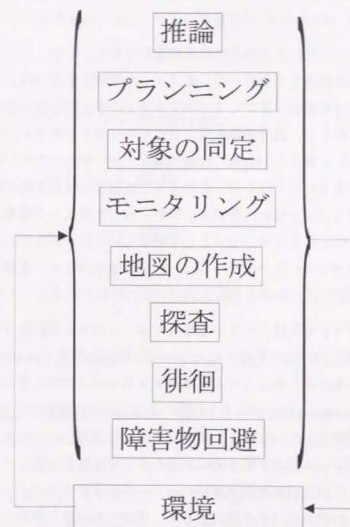 推論
プランニング
対象の同定
モニタリング
地図の作成
探査
徘徊
障害物回避
環境